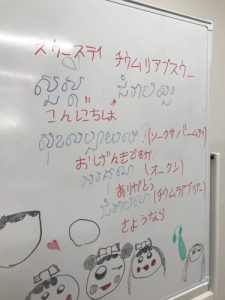 スウースティ チウムリアプスウー
សួស្តី ជំរាបសួរ
こんにちは
សុខសប្បាយទេ (ソークサバーイティ)
おげんきですか
អរគុណ (オークン)
ありがとう
ជំរាបលា (チウムリアプリア)
さようなら